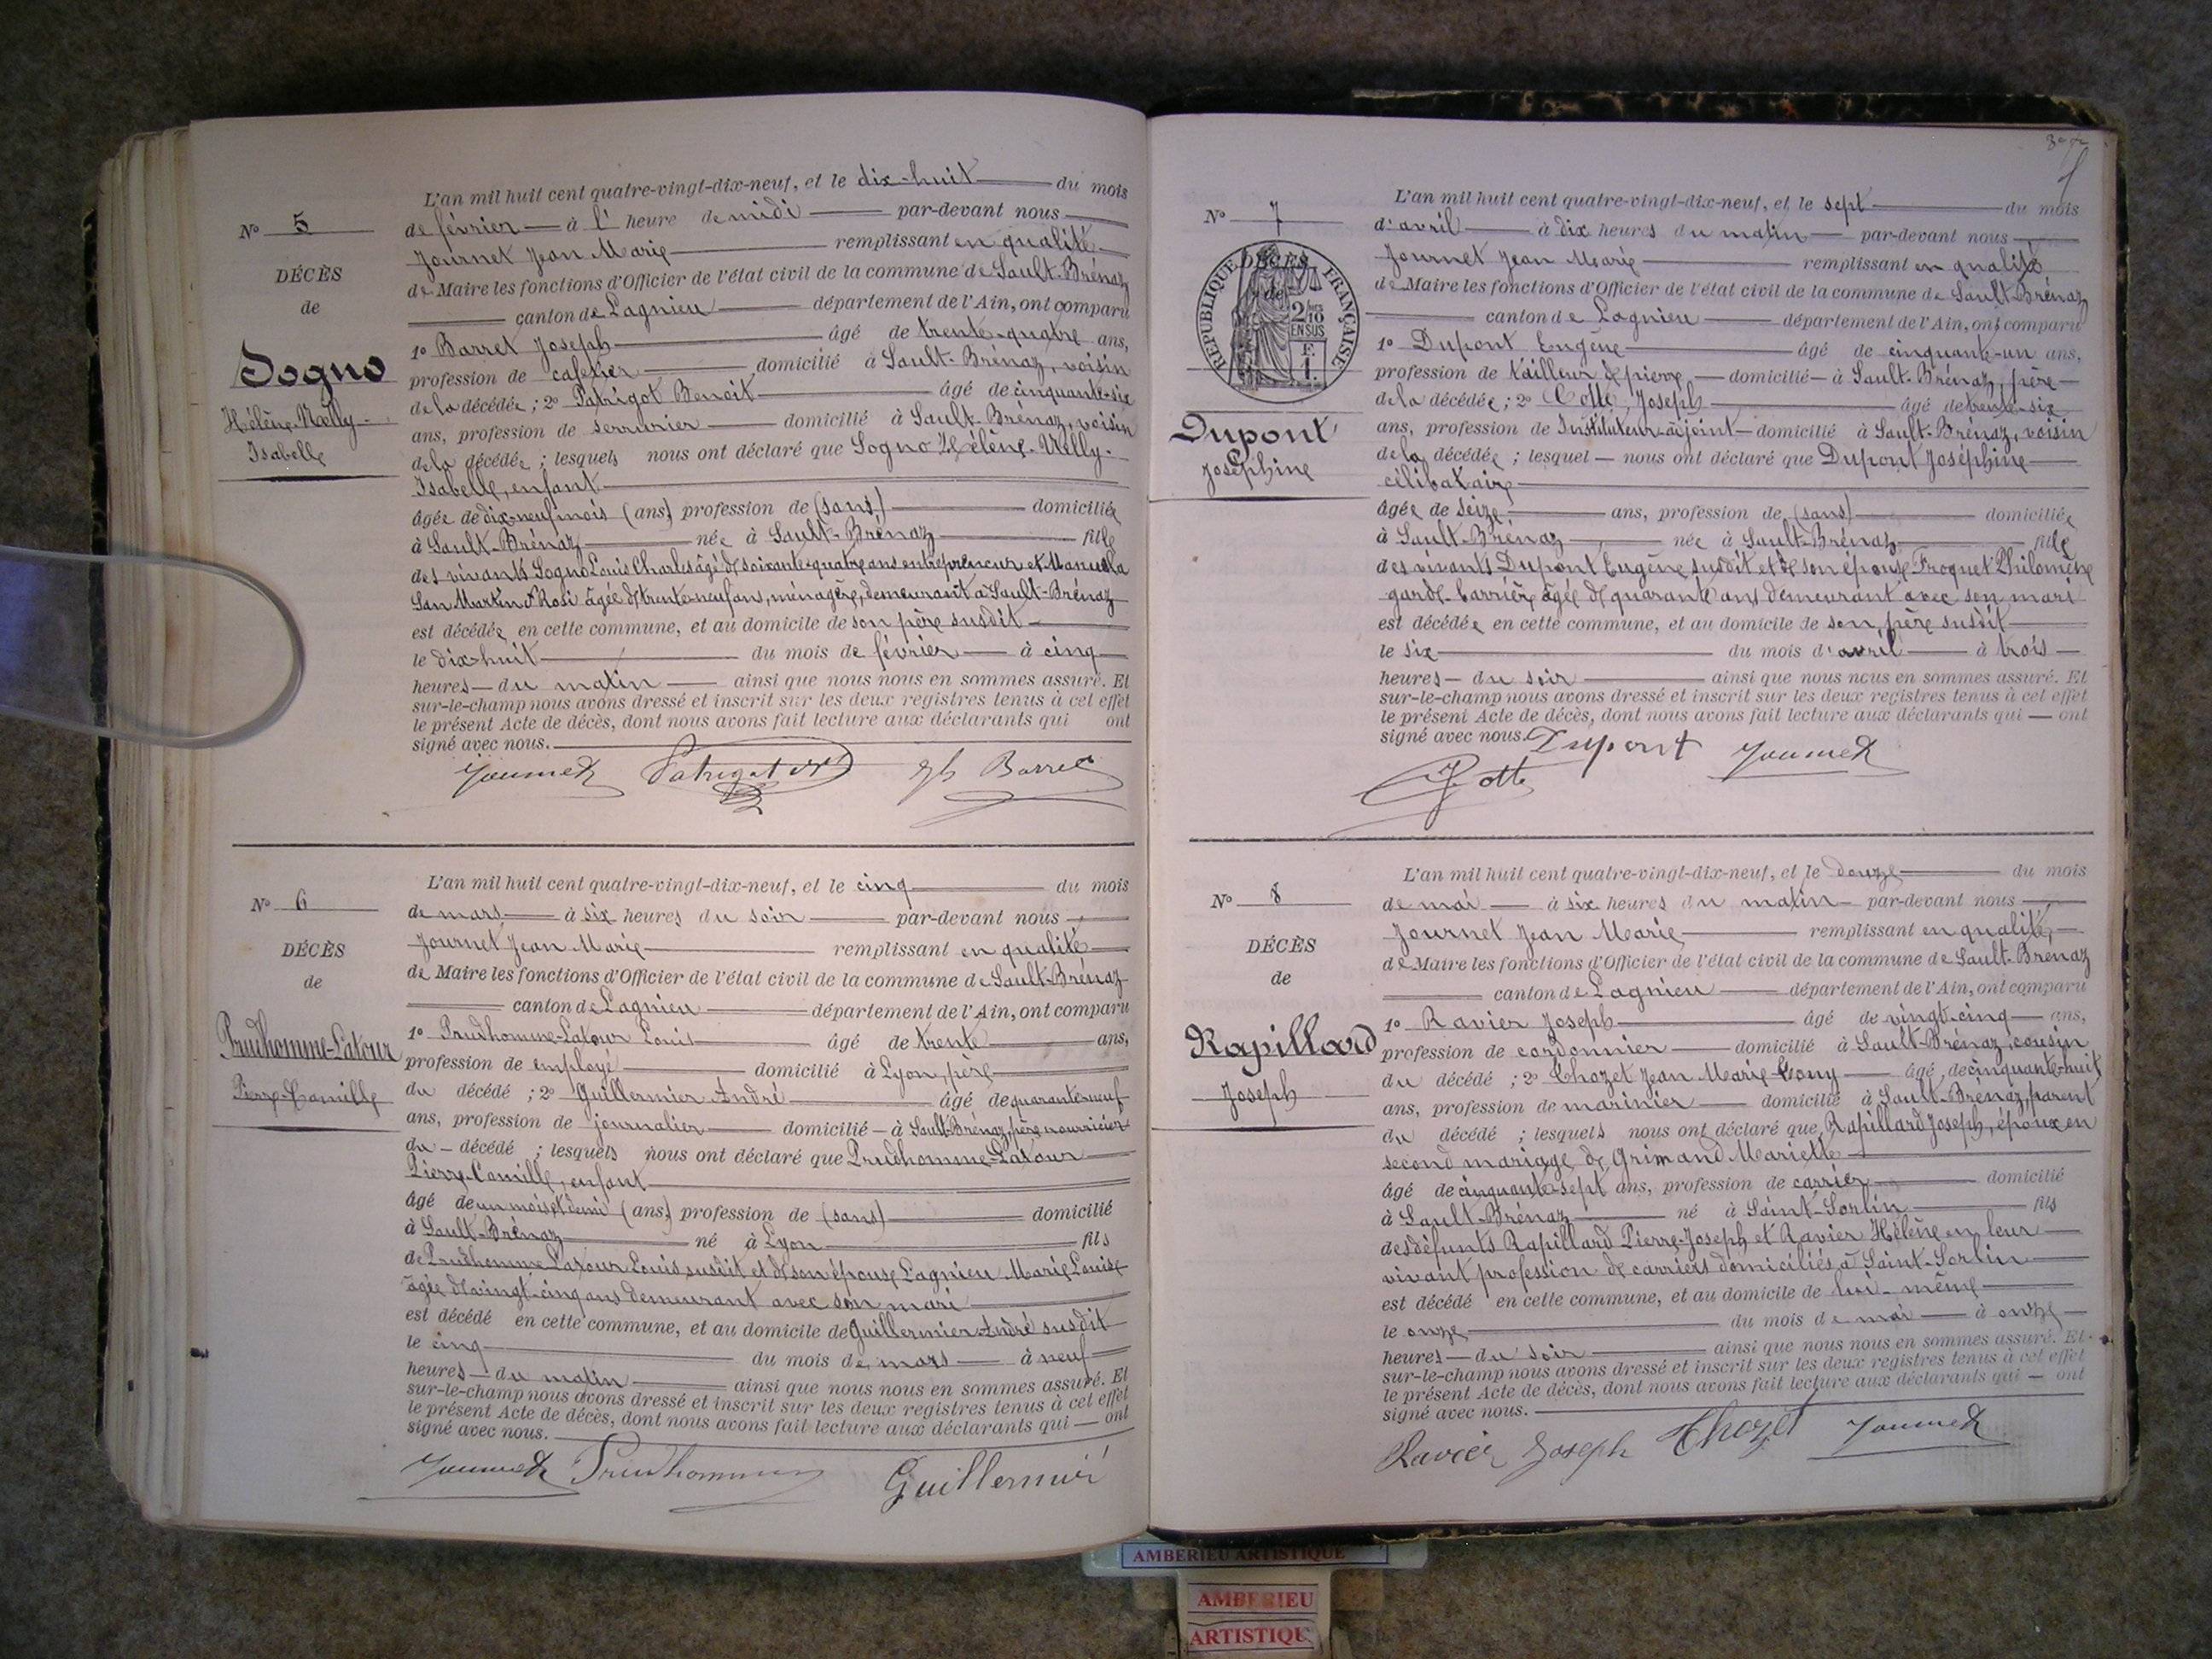 N° 5
DÉCÈS
de
Sogno
Hélène-Nelly-
Isabelle
L'an mil huit cent quatre-vingt-dix-neuf, et le dix-huit du mois
de février à l' heure de midi par-devant nous
Journet Jean Marie remplissant en qualité
de Maire les fonctions d'Officier de l'état civil de la commune de Sault-Brénaz
canton de Lagnieu département de l'Ain, ont comparu
1° Barret Joseph âgé de trente-quatre ans,
profession de cafetier domicilié à Sault-Brénaz, voisin
de la décédée ; 2° Patrigot Benoit âgé de cinquante-six
ans, profession de serrurier domicilié à Sault-Brénaz, voisin
de la décédée ; lesquels nous ont déclaré que Sogno Hélène-Nelly-
Isabelle, enfant
âgée de dix-neuf mois (ans) profession de (sans) domiciliée
à Sault-Brénaz née à Sault-Brénaz fille
des vivants Sogno Louis Charles âgé de soixante-quatre ans entrepreneur et Manuella
San Martin Rosi âgée de trente-neuf ans, ménagère, demeurant à Sault-Brénaz
est décédée en cette commune, et au domicile de son père susdit
le dix-huit du mois de février à cinq
heures du matin ainsi que nous nous en sommes assuré. Et
sur-le-champ nous avons dressé et inscrit sur les deux registres tenus à cet effet
le présent Acte de décès, dont nous avons fait lecture aux déclarants qui ont
signé avec nous.
Journet Patrigot Jh Barret
N° 6
DÉCÈS
de
Prudhomme-Latour
Pierre-Camille
L'an mil huit cent quatre-vingt-dix-neuf, et le cinq du mois
de mars à six heures du soir par-devant nous
Journet Jean Marie remplissant en qualité
de Maire les fonctions d'Officier de l'état civil de la commune de Sault-Brénaz
canton de Lagnieu département de l'Ain, ont comparu
1° Prudhomme-Latour Louis âgé de trente ans,
profession de employé domicilié à Lyon, père
du décédé ; 2° Guillermier André âgé de quarante-neuf
ans, profession de journalier domicilié à Sault-Brénaz, père nourricier
du décédé ; lesquels nous ont déclaré que Prudhomme-Latour
Pierre-Camille, enfant
âgé de un mois et demi (ans) profession de (sans) domicilié
à Sault-Brénaz né à Lyon fils
de Prudhomme Latour Louis susdit et de son épouse Lagnieu Marie Louise
âgée de vingt-cinq ans demeurant avec son mari
est décédé en cette commune, et au domicile de Guillermier André susdit
le cinq du mois de mars à neuf
heures du matin ainsi que nous nous en sommes assuré. Et
sur-le-champ nous avons dressé et inscrit sur les deux registres tenus à cet effet
le présent Acte de décès, dont nous avons fait lecture aux déclarants qui ont
signé avec nous.
Journet Prudhomme Guillermier
N° 7
DÉCÈS
de
RÉPUBLIQUE FRANÇAISE
2/10
EN SUS
F.
1.
Dupont
Joséphine
L'an mil huit cent quatre-vingt-dix-neuf, et le sept du mois
d'avril à dix heures du matin par-devant nous
Journet Jean Marie remplissant en qualité
de Maire les fonctions d'Officier de l'état civil de la commune de Sault-Brénaz
canton de Lagnieu département de l'Ain, ont comparu
1° Dupont Eugène âgé de cinquante-un ans,
profession de tailleur de pierre domicilié à Sault-Brénaz, père
de la décédée ; 2° Cotte, Joseph âgé de trente-six
ans, profession de Instituteur-adjoint domicilié à Sault-Brénaz, voisin
de la décédée ; lesquel nous ont déclaré que Dupont Joséphine
célibataire
âgée de seize ans, profession de (sans) domiciliée
à Sault-Brénaz née à Sault-Brénaz fille
des vivants Dupont Eugène susdit et de son épouse Froquet Philomène
garde-barrière âgée de quarante ans demeurant avec son mari
est décédée en cette commune, et au domicile de son père susdit
le six du mois d'avril à trois
heures du soir ainsi que nous nous en sommes assuré. Et
sur-le-champ nous avons dressé et inscrit sur les deux registres tenus à cet effet
le présent Acte de décès, dont nous avons fait lecture aux déclarants qui ont
signé avec nous. Dupont Journet
Cotte
N° 8
DÉCÈS
de
Rapillard
Joseph
L'an mil huit cent quatre-vingt-dix-neuf, et le douze du mois
de mai à six heures du matin par-devant nous
Journet Jean Marie remplissant en qualité
de Maire les fonctions d'Officier de l'état civil de la commune de Sault-Brenaz
canton de Lagnieu département de l'Ain, ont comparu
1° Ravier Joseph âgé de vingt-cinq ans,
profession de cordonnier domicilié à Sault-Brénaz, cousin
du décédé ; 2° Chozet Jean Marie Cony âgé de cinquante-huit
ans, profession de marinier domicilié à Sault-Brénaz, parent
du décédé ; lesquels nous ont déclaré que Rapillard Joseph, époux en
second mariage de Grimand Mariette
âgé de cinquante-sept ans, profession de carrier domicilié
à Sault-Brénaz né à Saint-Sorlin fils
des défunts Rapillard Pierre-Joseph et Ravier Hélène en leur
vivant profession de carriers domiciliés à Saint-Sorlin
est décédé en cette commune, et au domicile de lui-même
le onze du mois de mai à onze
heures du soir ainsi que nous nous en sommes assuré. Et
sur-le-champ nous avons dressé et inscrit sur les deux registres tenus à cet effet
le présent Acte de décès, dont nous avons fait lecture aux déclarants qui ont
signé avec nous.
Ravier Joseph Chozet Journet
AMBERIEU ARTISTIQUE
AMBERIEU
ARTISTIQUE